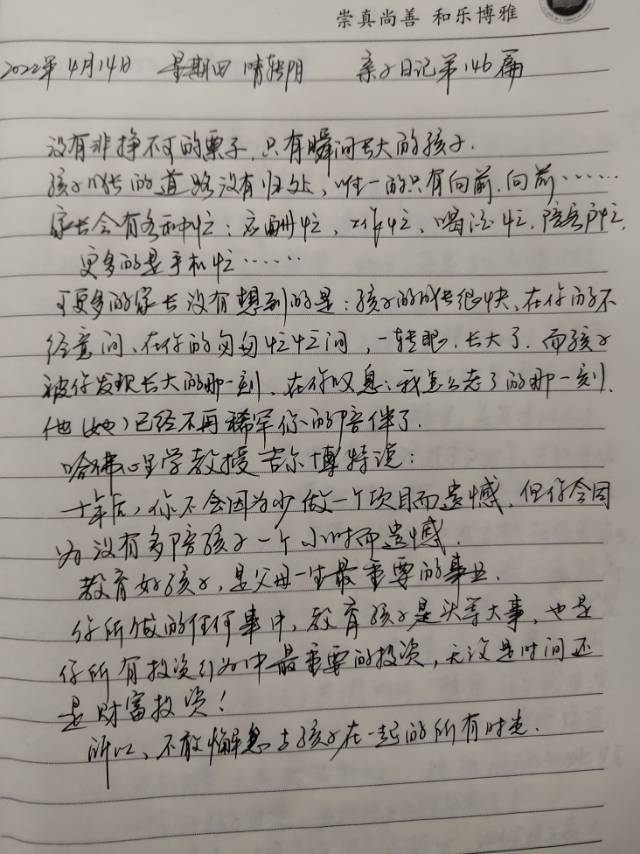 崇真尚善 和乐博雅
2022年4月14日 星期四 晴转阴 亲子日记第146篇
没有非挣不可的票子,只有瞬间长大的孩子.
孩子成长的道路没有归处,唯一的只有向前,向前……
家长会有各种忙:应酬忙,工作忙,喝酒忙,陪客户忙,
更多的是手机忙……
可更多的家长没有想到的是:孩子的成长很快、在你的不
经意间、在你的匆匆忙忙间,一转眼,长大了.而孩子
被你发现长大的那一刻,在你叹息:我怎么老了的那一刻,
他(她)已经不再稀罕你的陪伴了.
哈佛心理学教授吉尔博特说:
十年后,你不会因为少做一个项目而遗憾,但你会因
为没有多陪孩子一个小时而遗憾.
教育好孩子,是父母一生最重要的事业.
你所做的任何事中,教育孩子是头等大事,也是
你所有投资行为中最重要的投资,无论是时间还
是财富投资!
所以、不敢懈怠与孩子在一起的所有时光.